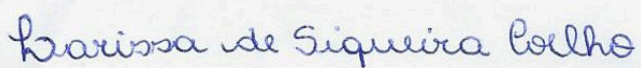 Larissa de Siqueira Coelho